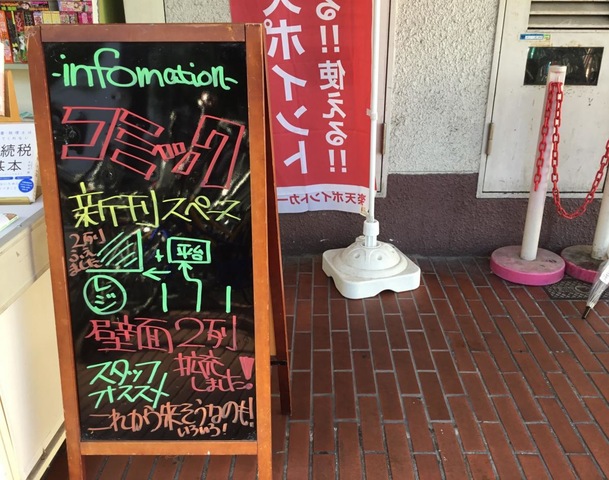 -infomation-
コミック
新刊スペース
2列
ふえ
ました
+
平台
レジ
壁面2列
拡充
しました!
スタッフ
オススメ
これから来そうなのも!
いろいろ!
る!!使える!!
スポイント
楽天ポイントカー
続税
基本